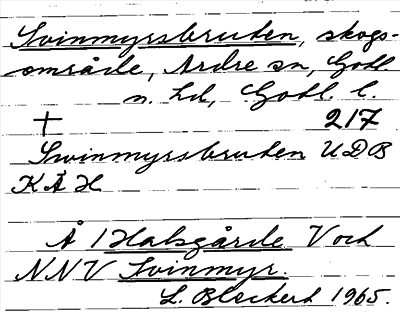 Svinmyrsbruten, skogs-
område, Ardre sn, Gotl.
n. hd, Gotl. l.
† 217
Svinmyrsbruten UDB
KÄH
Å 1 Halsgårde V och
NNV Svinmyr.
L. Bleckert 1965.